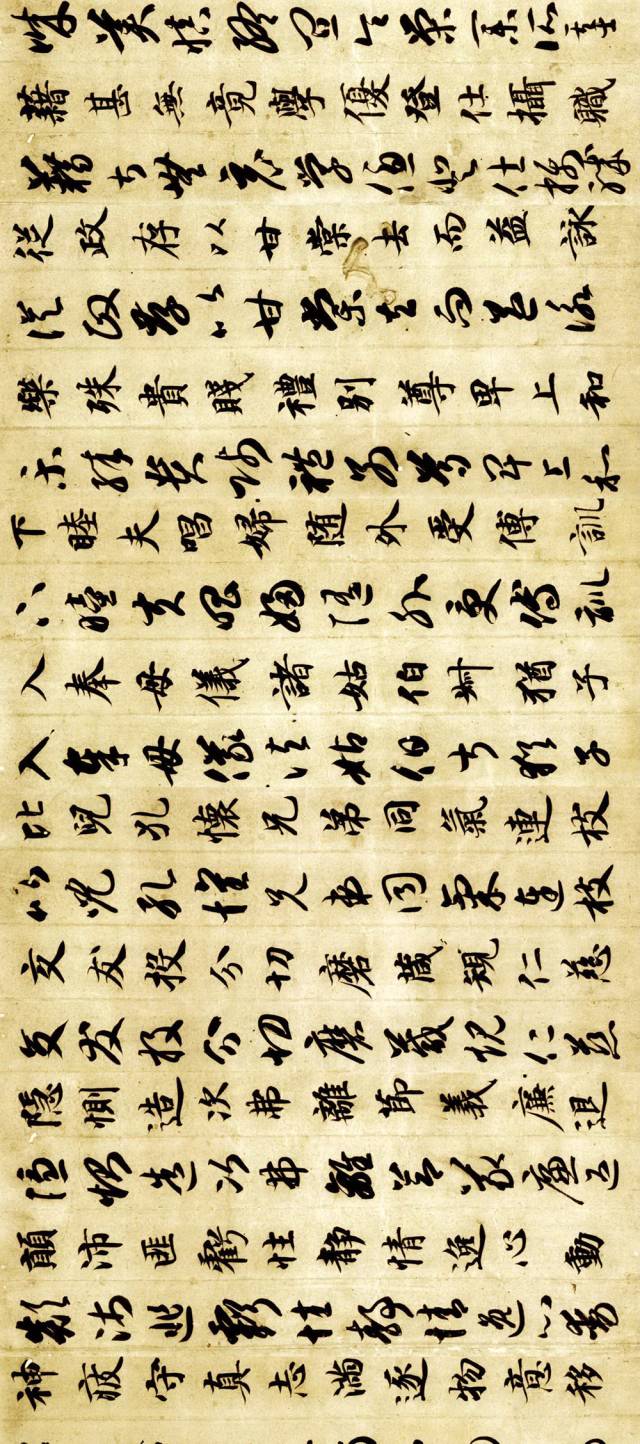 誠美慎終宜令榮業所基
藉甚無竟學優登仕攝職
藉甚無竟學優登仕攝職
從政存以甘棠去而益詠
從政存以甘棠去而益詠
樂殊貴賤禮別尊卑上和
樂殊貴賤禮別尊卑上和
下睦夫唱婦随外受傅訓
下睦夫唱婦随外受傅訓
入奉母儀諸姑伯叔猶子
入奉母儀諸姑伯叔猶子
比兒孔懷兄弟同氣連枝
比兒孔懷兄弟同氣連枝
交友投分切磨箴規仁慈
交友投分切磨箴規仁慈
隱惻造次弗離節義廉退
隱惻造次弗離節義廉退
顛沛匪虧性静情逸心動
顛沛匪虧性静情逸心動
神疲守真志滿逐物意移